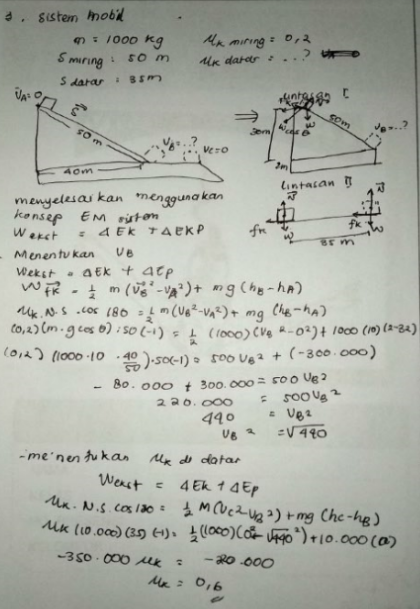 3. sistem mobil
m = 1000 kg
μk miring = 0,2
S miring : 50 m
μk datar = ...?
S datar : 35m
VA=0
S
50m
VB=..?
VC=0
40m
⇒
Lintasan I
30m
W cos θ
W
50m
VB=..?
2m
Lintasan II
N
N
fk
fk
W
W
35 m
menyelesaikan menggunakan
konsep EM sistem
Wekst = ΔEk + ΔEKP
Menentukan VB
Wekst = ΔEk + ΔEp
Wfk = 1/2 m(VB²-VA²) + mg (hB-hA)
μk.N.S.cos 180 = 1/2 m(VB²-VA²) + mg (hB-hA)
(0,2)(m.g cosθ).50(-1) = 1/2 (1000)(VB²-0²)+1000(10)(2-32)
(0,2)(1000.10.40/50).50(-1) = 500 VB² + (-300.000)
- 80.000 + 300.000 = 500 VB²
220.000 = 500 VB²
440 = VB²
VB² = √440
-menentukan μk di datar
Wekst = ΔEk + ΔEp
μk.N.S.cos 180 = 1/2 M(VC²-VB²)+mg(hc-hB)
μk(10.000)(35)(-1) = 1/2(1000)(0²-√440²)+10.000(0)
-350.000 μk = -220.000
μk = 0,6